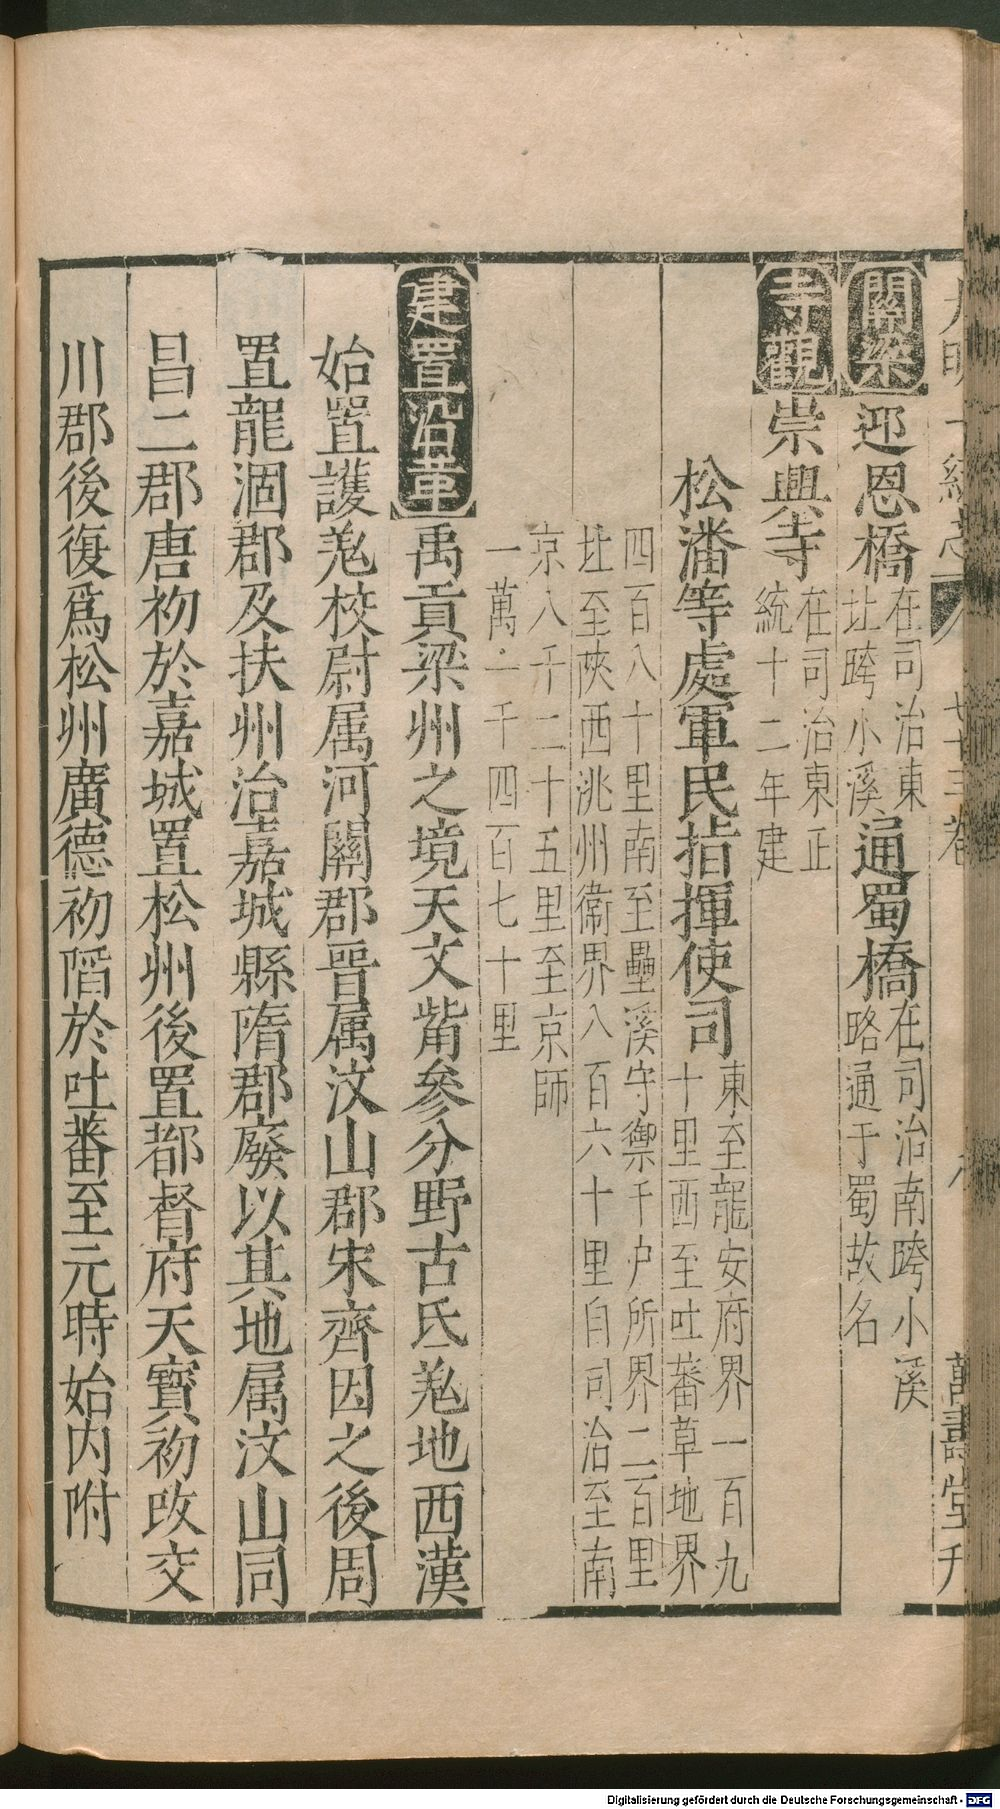 關梁 迎恩橋 在司治東北跨小溪 通蜀橋 在司治南跨小溪路通于蜀故名
寺觀 崇興寺 在司治東正統十二年建
松潘等處軍民指揮使司 東至龍安府界一百九十里西至吐蕃草地界
四百八十里南至壘溪守禦千户所界二百里北至陜西洮州衞界八百六十里自司治至南
京八千二十五里至京師一萬一千四百七十里
建置沿革 禹貢梁州之境天文觜參分野古氐羗地西漢
始置護羗校尉属河關郡晉属汶山郡宋齊因之後周
置龍涸郡及扶州治嘉城縣隋郡廢以其地属汶山同
昌二郡唐初於嘉城置松州後置都督府天寳初改交
川郡後復爲松州廣德初陷於吐蕃至元時始内附
萬壽堂刋
Digitalisierung gefördert durch die Deutsche Forschungsgemeinschaft - DFG